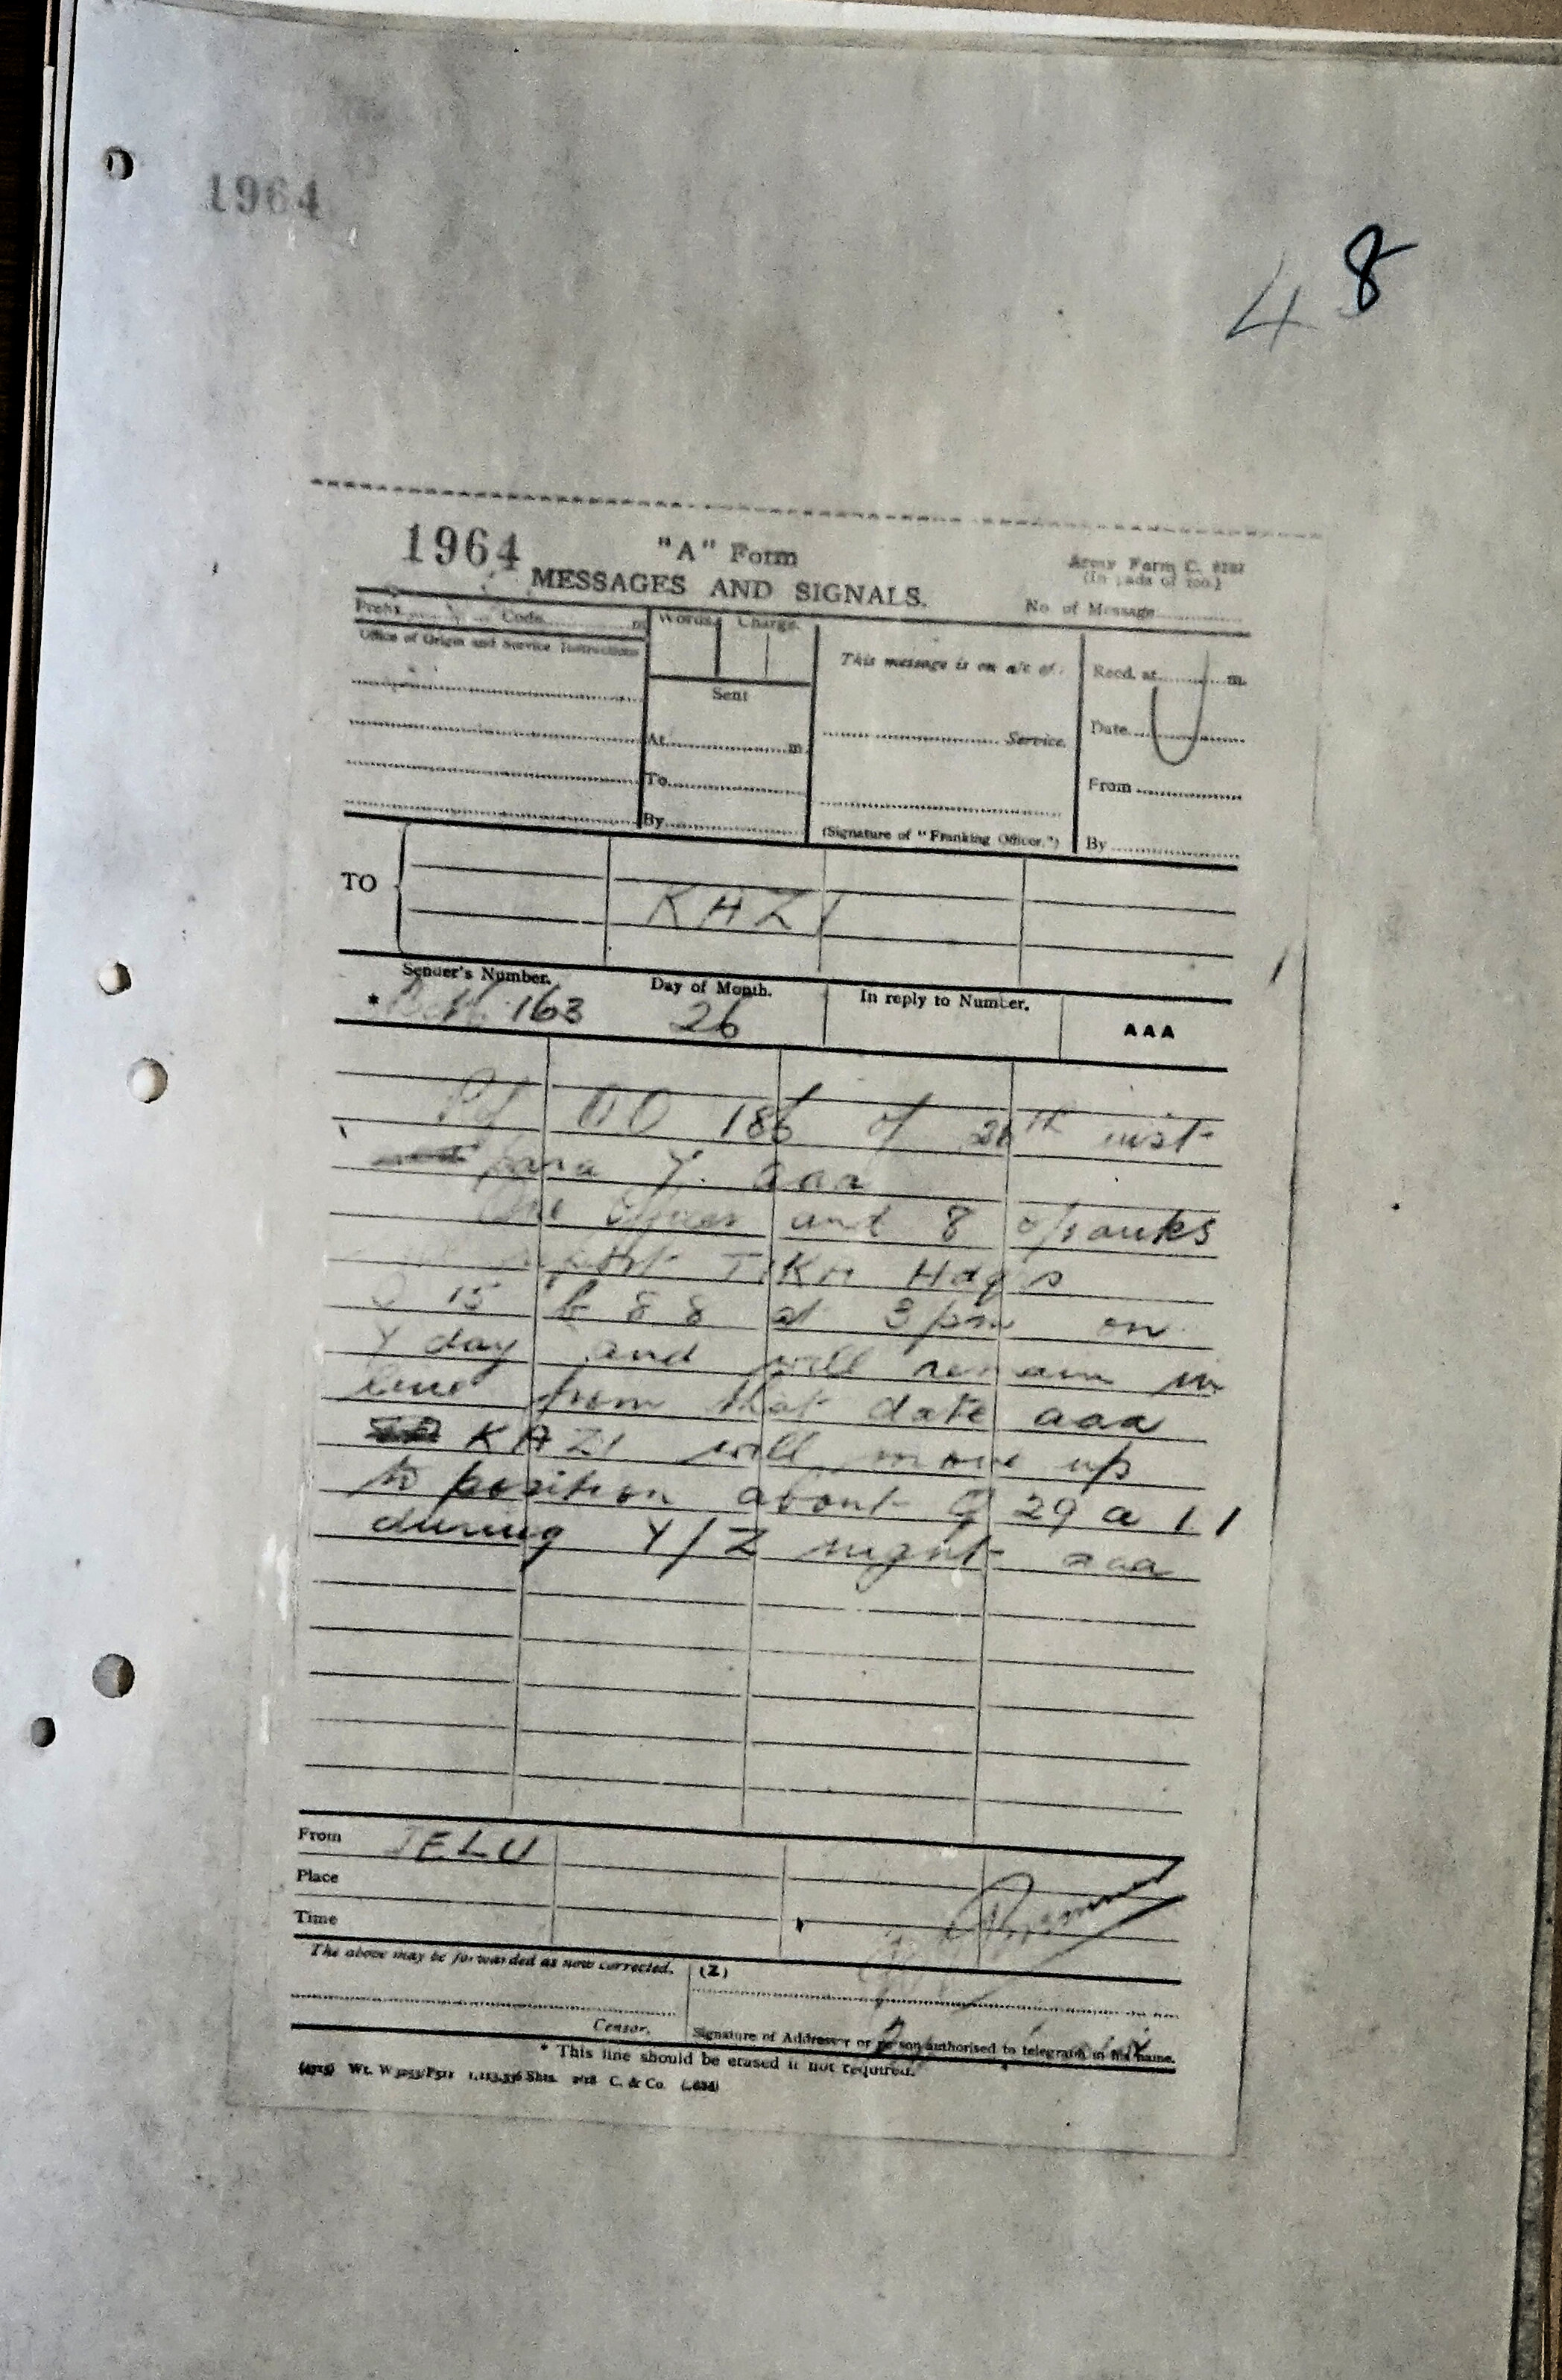 1964
48
1964
"A" Form
MESSAGES AND SIGNALS.
Army Form C.
(In pads of 100.)
No. of Message
Prefix Code m
Words. Charge.
Office of Origin and Service Instructions
Sent
At m.
To
By
This message is on a/c of:
Service.
(Signature of "Franking Officer.")
Recd. at m.
Date
From
By
TO
KAZI
Sender's Number. Day of Month. In reply to Number. AAA
* 163 26
Ref OO 186 of 26th inst
para Y. aaa
One Officer and 8 o/ranks
report Hdqrs
15 b 8 8 at 3 pm on
Y day and will remain in
line from that date aaa
KAZI will move up
to position about Q 29 a 1.1
during Y/Z night aaa
From JELU
Place
Time
The above may be forwarded as now corrected. (Z)
Censor.
Signature of Addressor or person authorised to telegraph in his name.
* This line should be erased if not required.
Wt. 2/18 C. & Co.